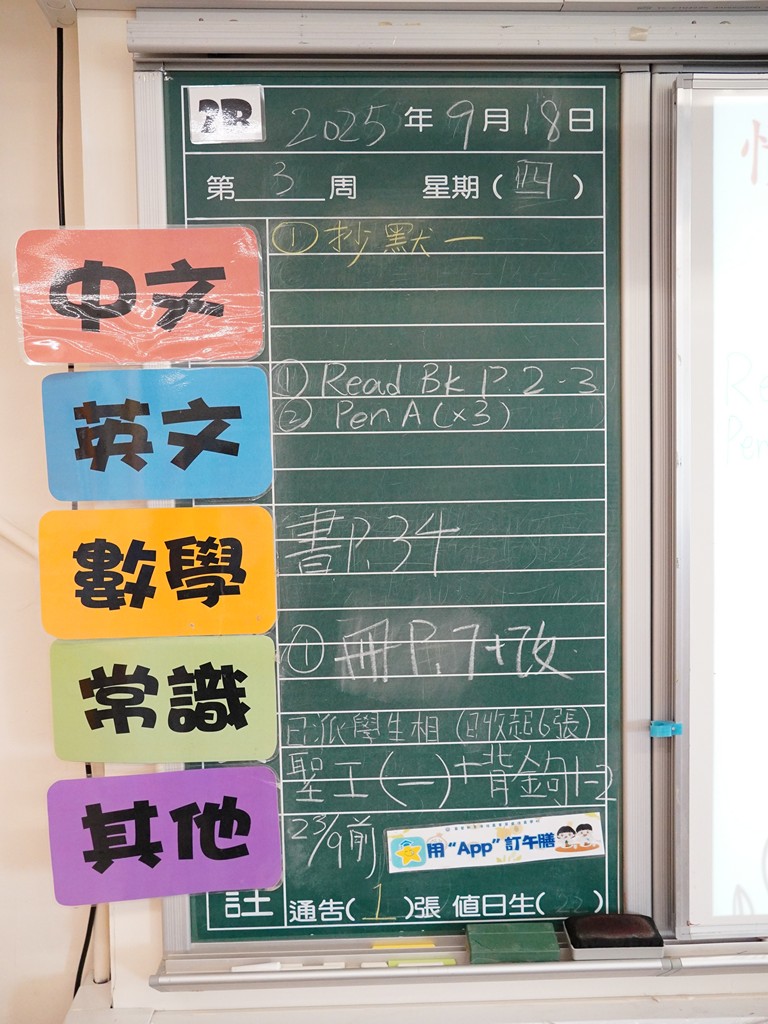 2B
2025年9月18日
第 3 周 星期(四)
中文
①抄默一
英文
① Read Bk P.2-3
② Pen A (x3)
數學
書P.34
常識
① 冊P.7+改
其他
已派學生相(已收起6張)
聖工(一)+背金句1-2
23/9前
用“App”訂午膳
註
通告(1)張 值日生( )